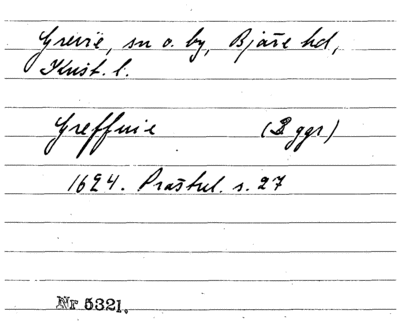 Grevie, sn o. by, Bjäre hd,
Krist. l.
Greffuie (2 ggr)
1624. Prästul. s. 27
Nr 5321.